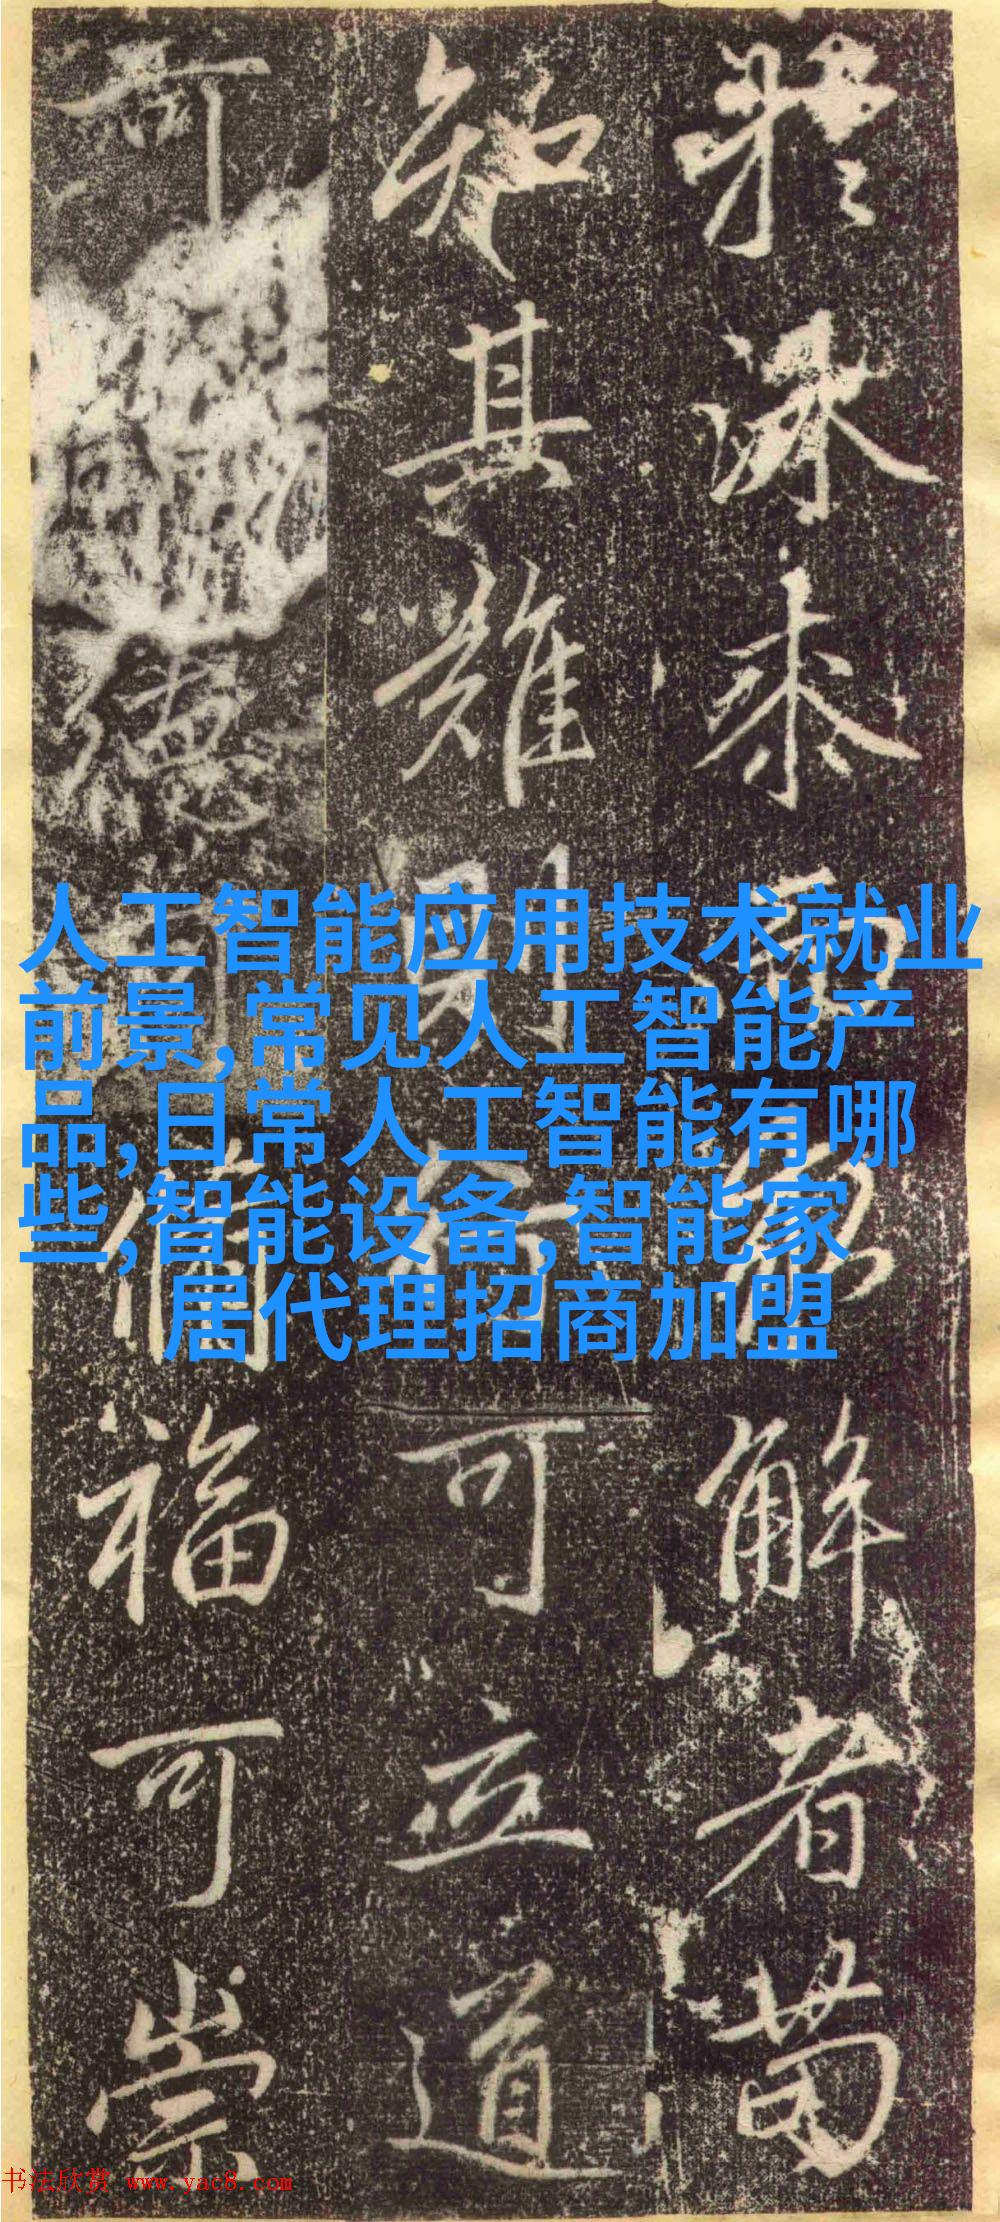 於 解者苟
知其難則 可立道
可 德可備福可崇
人工智能应用技术就业
前景,常见人工智能产
品,日常人工智能有哪
些,智能设备,智能家
居代理招商加盟
书法欣赏 www.yac8.com